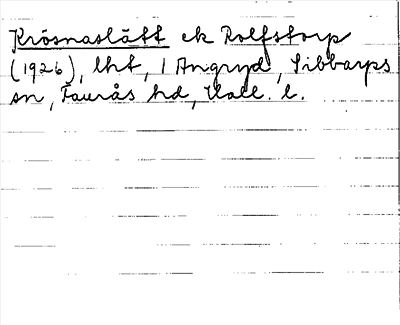 Krösnaslätt ek Rolfstorp
(1926), lht, 1 Angryd, Sibbarps
sn, Faurås hd, Hall. l.